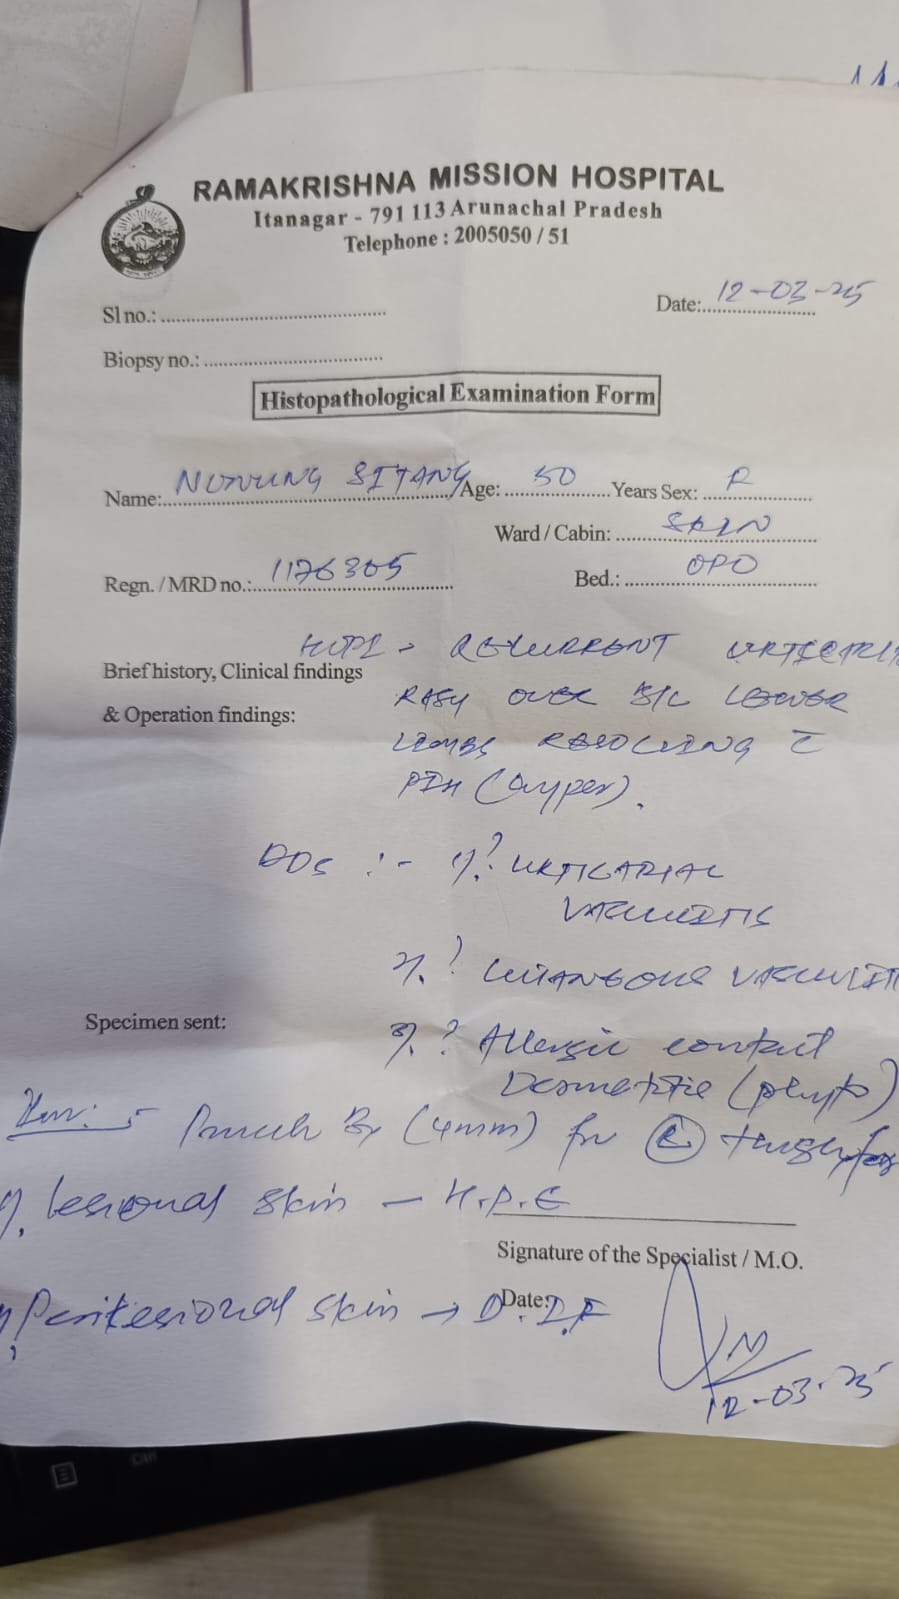 RAMAKRISHNA MISSION HOSPITAL
Itanagar - 791 113 Arunachal Pradesh
Telephone : 2005050 / 51
Sl no.: Date: 12-03-25
Biopsy no.:
Histopathological Examination Form
Name: SITANG Age: 50 Years Sex:
Ward / Cabin: SKIN
Regn. / MRD no.: 1176305 Bed.: OPD
RECURRENT
Brief history, Clinical findings
OVER B/L LOWER
& Operation findings:
LIMBS RESOLVING C
PIH (Hyper).
DDs :- 1). ? URTICARIAL
VASCULITIS
2). ? CUTANEOUS
Specimen sent: 3). ? Allergic contact
Dermatitis (phyto)
Punch Bx (4mm) (R)
1). lesional skin – H.P.E
Signature of the Specialist / M.O.
Perilesional skin → D.I.F
Date:
12-03-25
Ctrl